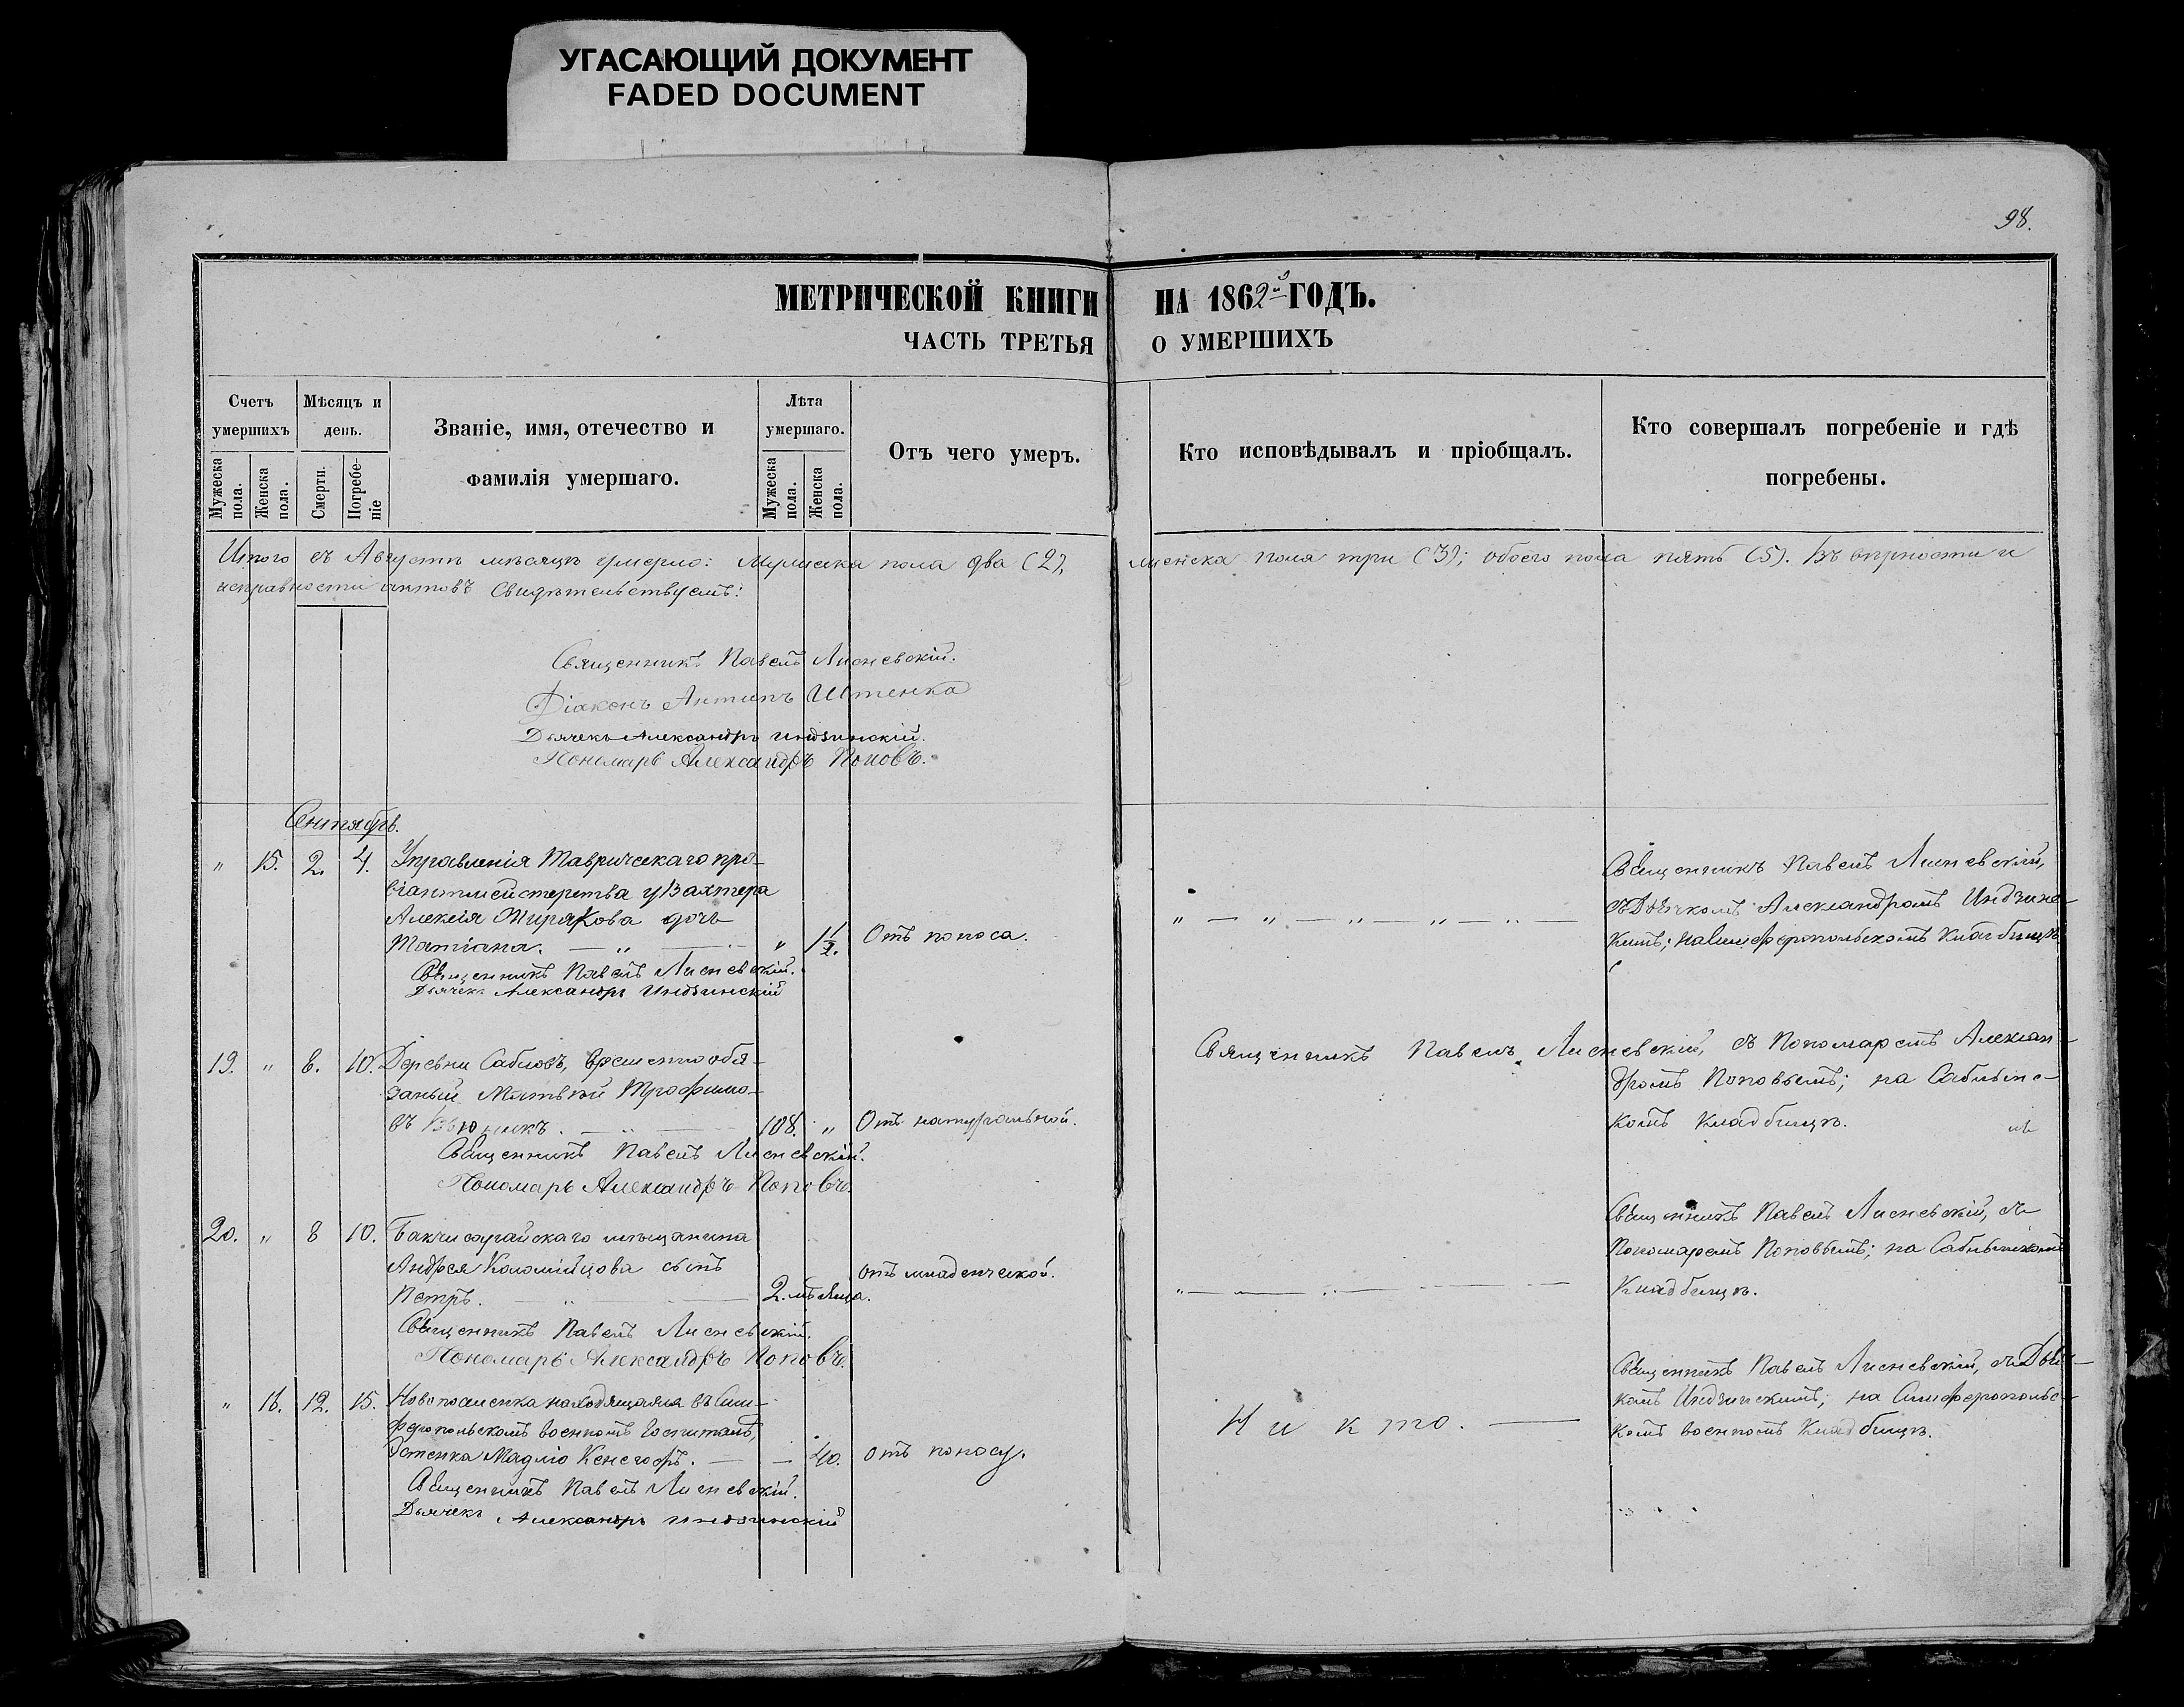 УГАСАЮЩИЙ ДОКУМЕНТ
FADED DOCUMENT
98.
МЕТРИЧЕСКОЙ КНИГИ НА 1862й ГОДЪ.
ЧАСТЬ ТРЕТЬЯ О УМЕРШИХЪ
Счетъ умершихъ
Мужеска пола.
Женска пола.
Мѣсяцъ и день.
Смерти.
Погребе-
ніе
Званіе, имя, отечество и
фамилія умершаго.
Лѣта умершаго.
Мужеска пола.
Женска пола.
Отъ чего умеръ.
Кто исповѣдывалъ и пріобщалъ.
Кто совершалъ погребеніе и гдѣ
погребены.
Итого въ Августѣ мѣсяцѣ умерло: Мужеска пола два (2), женска пола три (3); обоего пола пять (5). Въ вѣрности и
исправности актовъ свидѣтельствуемъ:
Священникъ Павелъ Лисневскій.
Діаконъ Антипъ Штенко
Дьячекъ Александръ Индзинскій.
Пономарь Александръ Поповъ.
Сентябрь.
" 15. 2. 4. Управленія Таврическаго про-
віантмейстерства у Вахтера
Алексія Ширякова дочь
Татіана. — " — " 1½. Отъ поноса.
Священникъ Павелъ Лисневскій.
Дьячекъ Александръ Индзинскій
" — " — " — " — " —
Священникъ Павелъ Лисневскій,
съ Дьячкомъ Александромъ Индзинс-
кимъ; на Симферопольскомъ кладбищѣ
19. " 8. 10. Деревни Сабловъ, временнообя-
заный Матвѣй Трофимо-
въ Вьюникъ. — " — 108. " Отъ натуральной.
Священникъ Павелъ Лисневскій.
Пономарь Александръ Поповъ.
Священникъ Павелъ Лисневскій, съ Пономаремъ Алексан-
дромъ Поповымъ; на Саблынс-
комъ кладбищѣ.
20. " 8 10. Бакчисарайскаго мѣщанина
Андрея Коломійцова сынъ
Петръ. — " — 2. мѣсяца. отъ младенческой.
Священникъ Павелъ Лисневскій.
Пономарь Александръ Поповъ.
" — " —
Священникъ Павелъ Лисневскій, съ
Пономаремъ Поповымъ; на Саблынскомъ
кладбищѣ.
" 16. 12. 15. Новопоселенка находящаяся въ Сим-
феропольскомъ военномъ госпиталѣ,
Кенегофъ. — — 40. отъ поносу.
Священникъ Павелъ Лисневскій.
Дьячекъ Александръ Индзинскій
Никто. —
Священникъ Павелъ Лисневскій, съ Дьяч-
комъ Индзинскимъ; на Симферопольс-
комъ военномъ кладбищѣ.